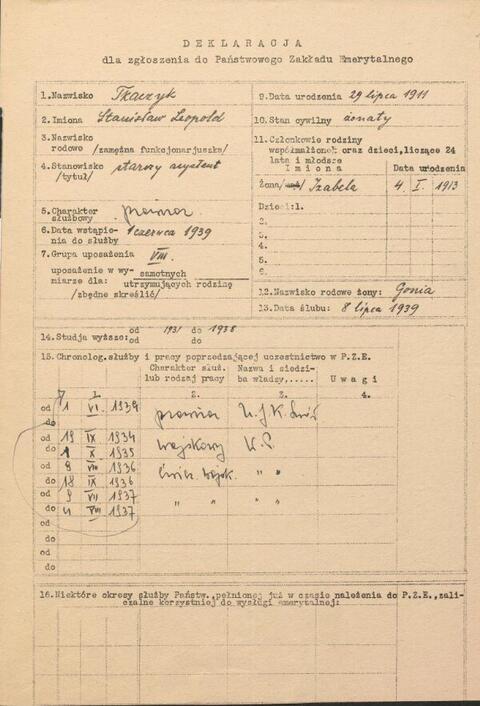 DEKLARACJA
dla zgłoszenia do Państwowego Zakładu Emerytalnego
1.Nazwisko Tkaczyk
2. Imiona Stanisław Leopold
3. Nazwisko
rodowe /zamężna funkcjonarjuszka/
4. Stanowisko starszy asystent
/tytuł/
5. Charakter
służbowy prowizor.
6.Data wstąpie-
nia do służby 1 czerwca 1939
7.Grupa uposażenia VIII.
uposażenie w wy- samotnych
miarze dla: utrzymujących rodzinę
/zbędne skreślić/
9.Data urodzenia 29 lipca 1911
10. Stan cywilny żonaty
11. Członkowie rodziny
współmałżonek oraz dzieci,liczące 24
lata i młodsze
Imiona Data urodzenia
Żona Izabela 4 I. 1913
Dzieci:1.
2.
3.
4.
5.
6.
12. Nazwisko rodowe żony: Gonia
13.Data ślubu: 8 lipca 1939
14. Studja wyższe: od 1931 do 1938
od do
15. Chronolog.służby i pracy poprzedzającej uczestnictwo w P.Z.E.
Charakter służ. lub rodzaj pracy
Nazwa i siedziba władzy,......
Uwagi
1. 2. 3. 4.
od 1 VI. 1939 prowizor U.J.K. Lwów
do
od 19 IX 1934 wojskowy W.P.
do 1 X 1935
od 8 VIII 1936 ćwicz. wojsk. " "
do 18 IX 1936
od 9 VII 1937 " " " "
do 4 VIII 1937
od
do
od
do
16.Niektóre okresy służby Państw.,pełnionej już w czasie należenia do P.Z.E.,zali-
czalne korzystniej do wysługi emerytalnej: